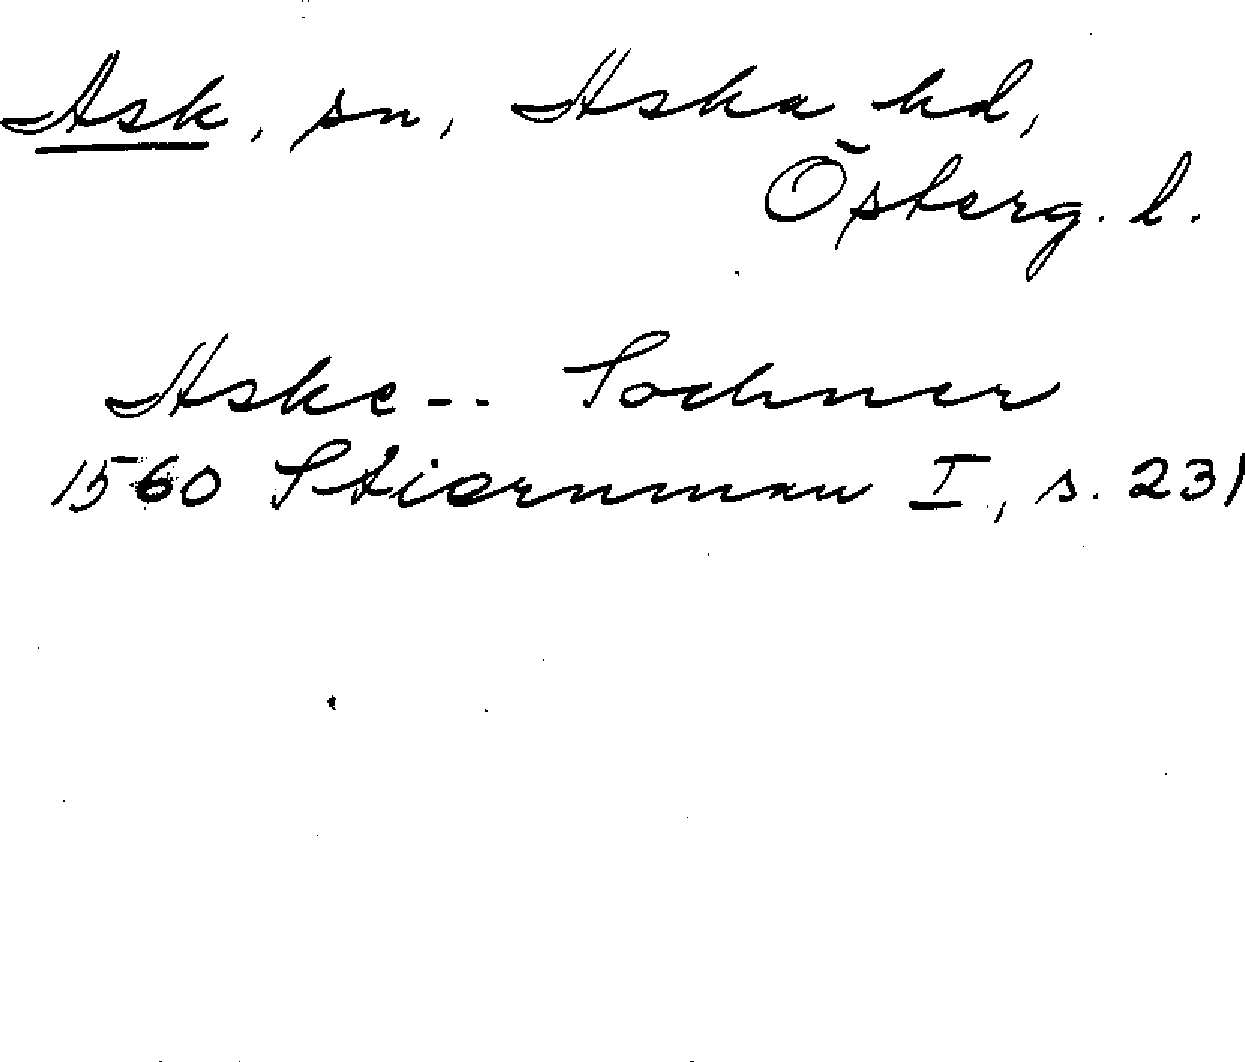 Ask, sn, Aska hd,
Österg. l.
Aske-- Sochner
1560 Stiernman I, s. 231